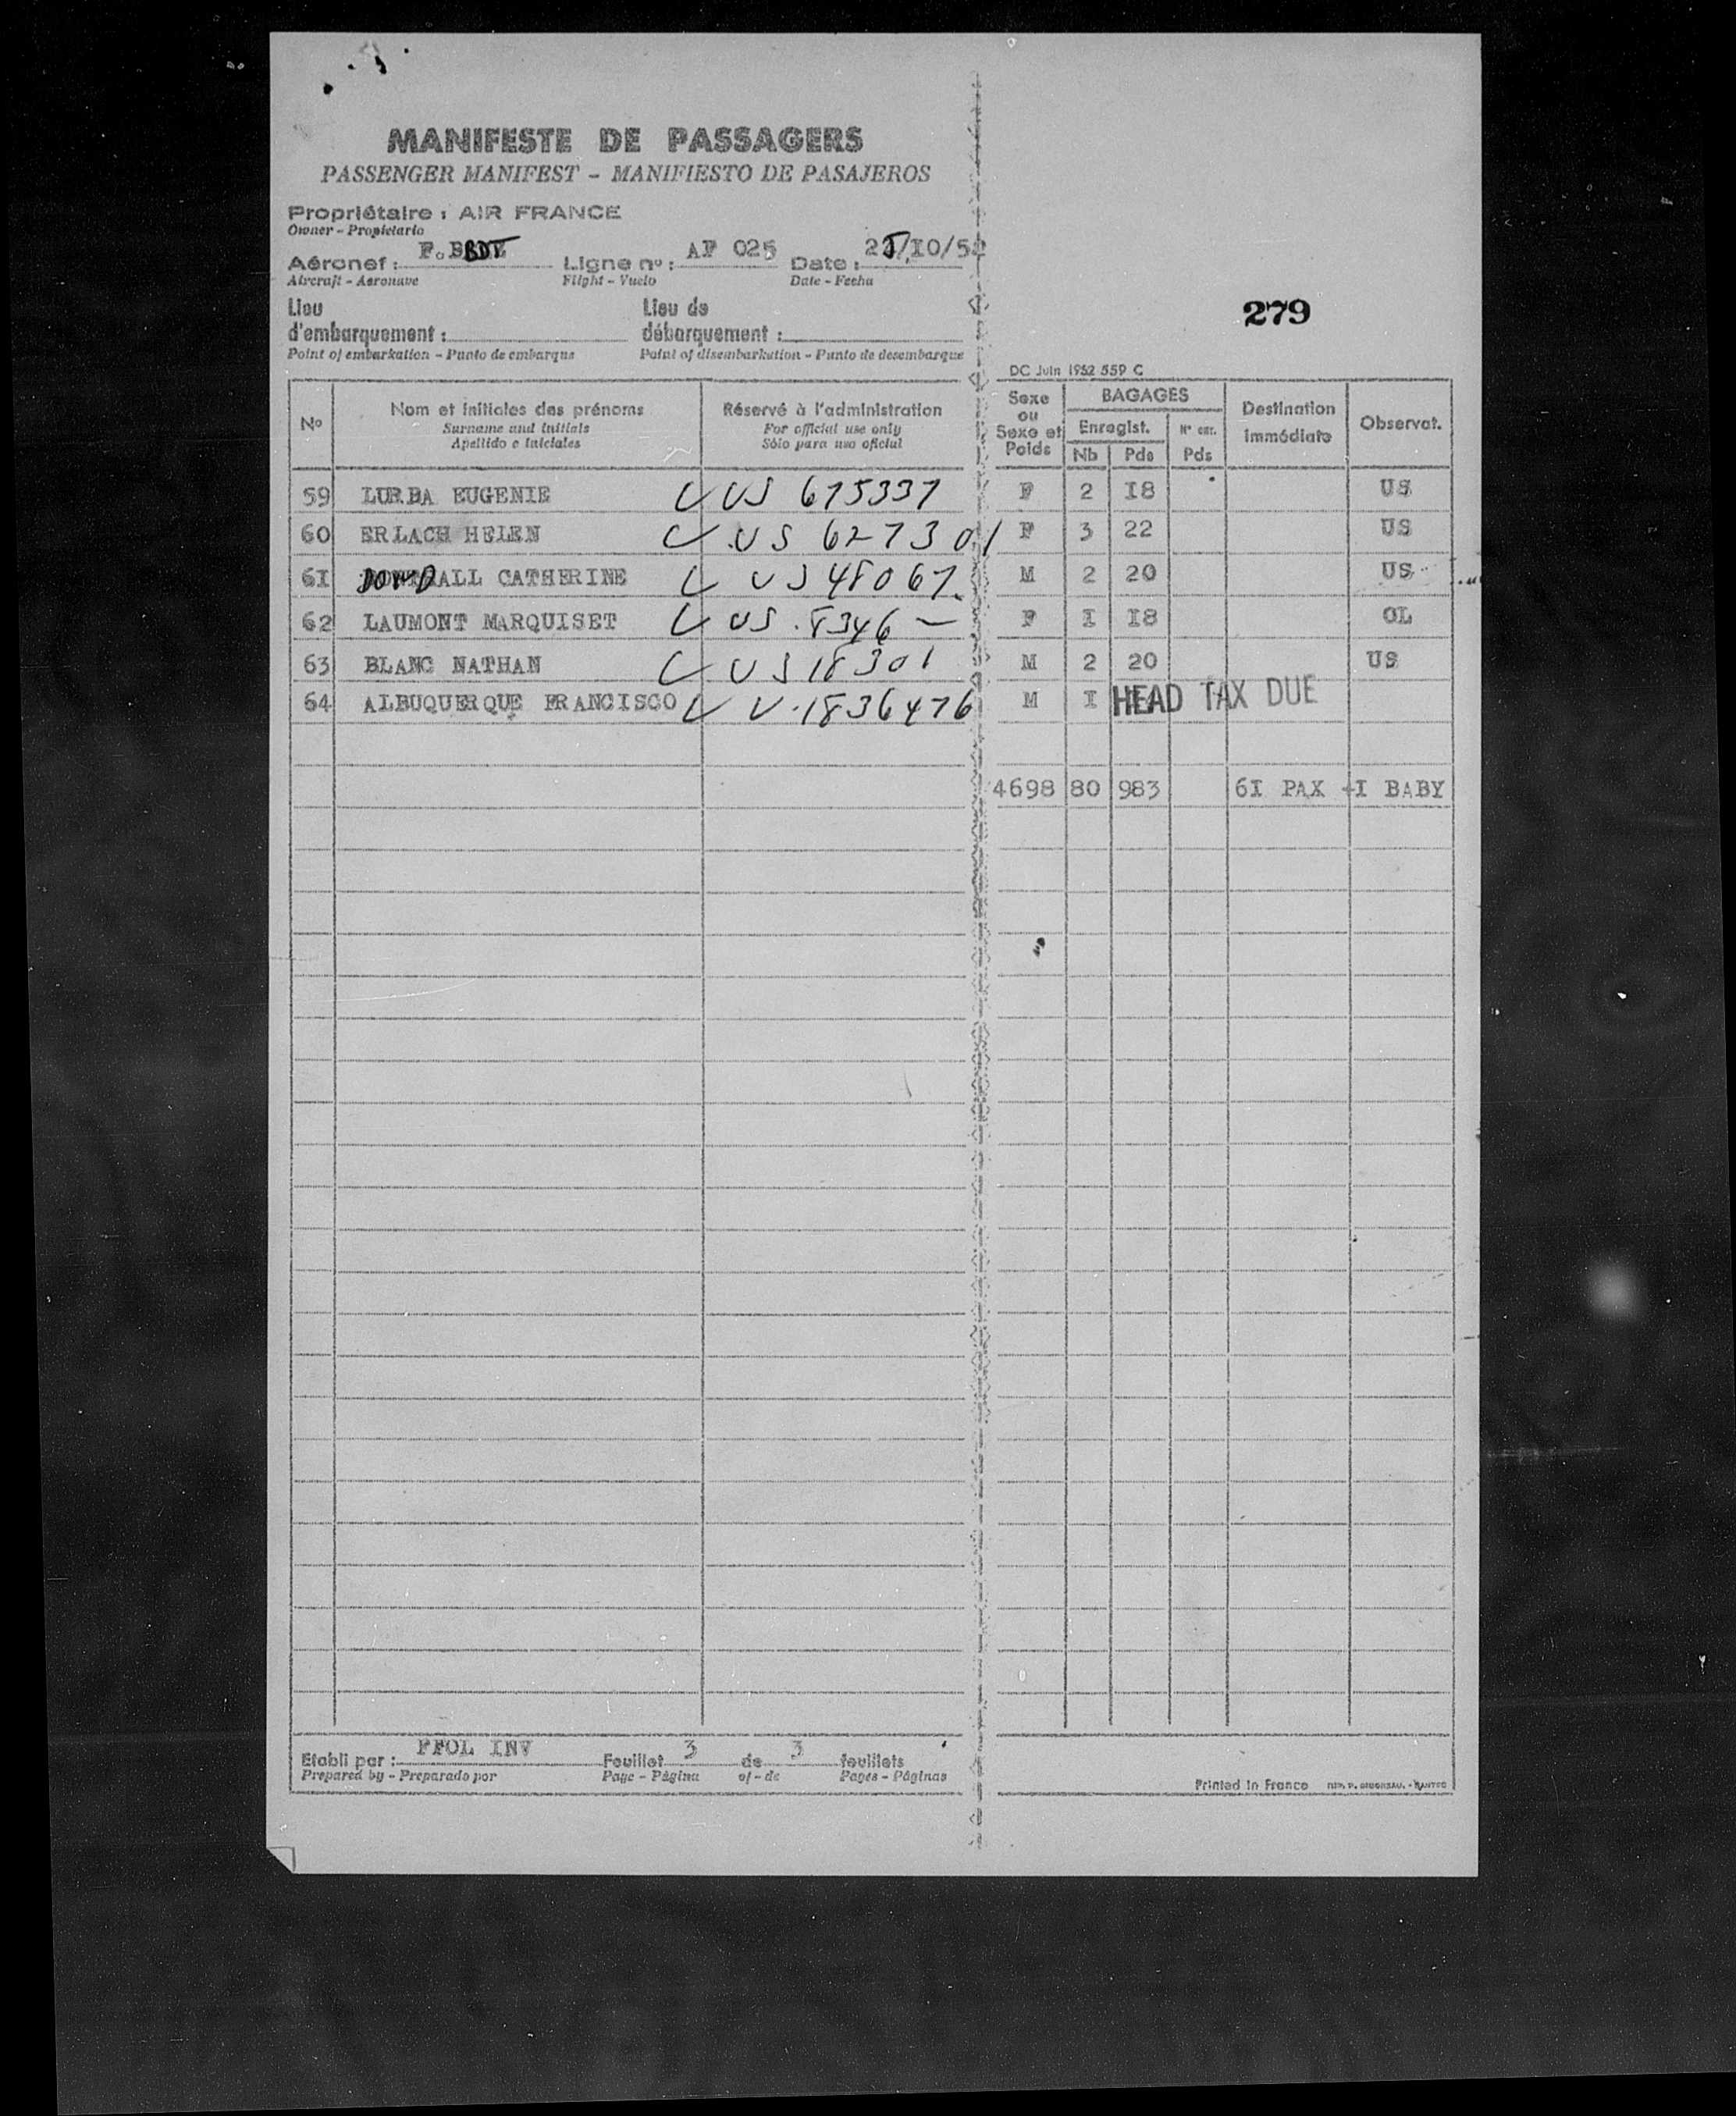 MANIFESTE DE PASSAGERS
PASSENGER MANIFEST - MANIFIESTO DE PASAJEROS
Propriétaire : AIR FRANCE
Owner - Propietario
Aéronef : F.B
Ligne nº : AF 025
Date : /I0/52
Aircraft - Aeronave
Flight - Vuelo
Date - Fecha
279
Lieu d'embarquement :
Lieu de débarquement :
Point of embarkation - Punto de embarque
Point of disembarkation - Punto de desembarque
DC Juin 1952 559 C
No
Nom et initiales des prénoms
Surname and initials
Apellido e iniciales
Réservé à l'administration
For official use only
Sólo para uso oficial
Sexe ou Sexe et Poids
BAGAGES
Enregist.
Nb Pds
Pds
Destination immédiate
Observat.
59 LURBA EUGENIE US 615331 F 2 I8 US
60 ERLACH HELEN US 627301 F 3 22 US
6I ALL CATHERINE US 48061 M 2 20 US
62 LAUMONT MARQUISET US 8346 F I I8 OL
63 BLANC NATHAN US 18301 M 2 20 US
64 ALBUQUERQUE FRANCISCO V.1836476 M I HEAD TAX DUE
4698 80 983 6I PAX +I BABY
Etabli par : FFOL INV
Feuillet 3 de 3 feuillets
Prepared by - Preparado por
Page - Página of - de Pages - Páginas
Printed in France